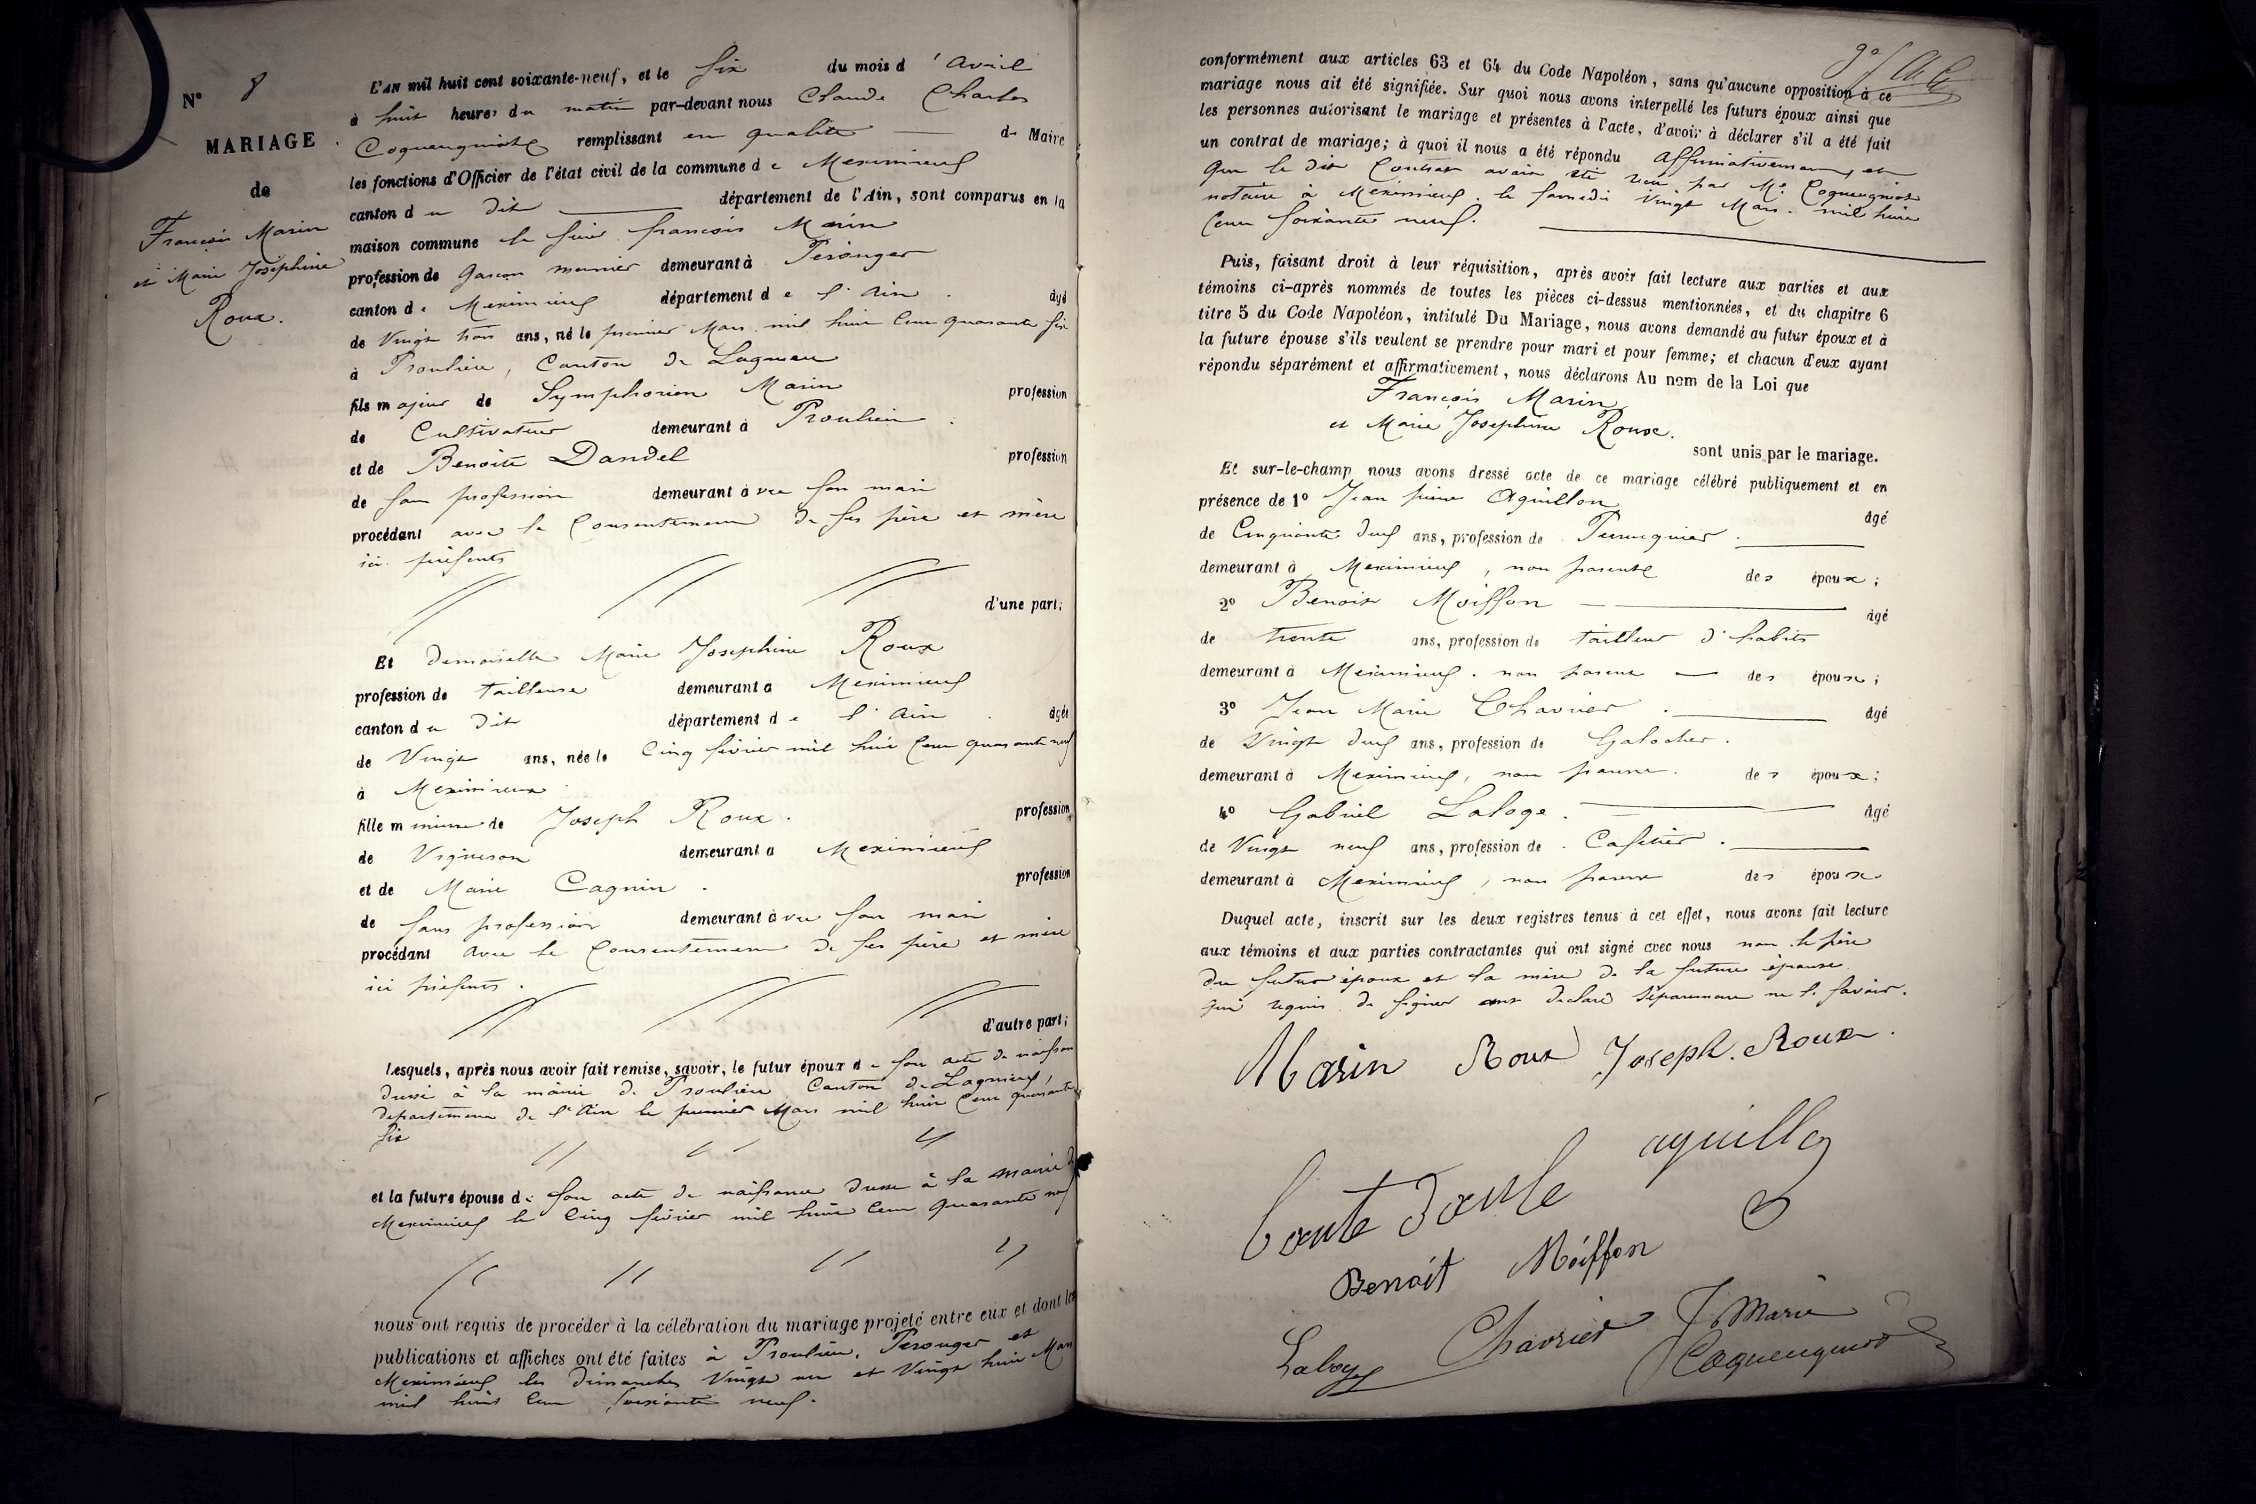 N° 8
MARIAGE
de
François Marin
et Marie Joséphine
Roux.
L'AN mil huit cent soixante-neuf, et le six du mois d'avril
à huit heures du matin par-devant nous Claude Charles
Coquengniot remplissant en qualité de Maire
les fonctions d'Officier de l'état civil de la commune de Meximieux
canton du dit département de l'Ain, sont comparus en la
maison commune le sieur françois Marin
profession de garçon meunier demeurant à Pérouges
canton de Meximieux département de l'Ain. âgé
de Vingt trois ans, né le premier Mars mil huit Cent quarante six
à Proulieu, Canton de Lagnieu
fils majeur de Symphorien Marin profession
de Cultivateur demeurant à Proulieu
et de Benoite Dandel profession
de San profession demeurant avec son mari
procédant avec le Consentement de ses père et mère
ici présents
d'une part;
Et demoiselle Marie Joséphine Roux
profession de tailleuse demeurant à Meximieux
canton du dit département de l'Ain. âgée
de Vingt ans, née le Cinq février mil huit Cent quarante neuf
à Meximieux
fille mineure de Joseph Roux. profession
de Vigneron demeurant à Meximieux
et de Marie Cagnin. profession
de sans profession demeurant avec son mari
procédant avec le Consentement de ses père et mère
ici présents.
d'autre part;
Lesquels, après nous avoir fait remise, savoir, le futur époux de son acte de naissance
dressé à la mairie de Proulieu Canton de Lagnieu,
département de l'Ain le premier Mars mil huit Cent quarante
six
et la future épouse de son acte de naissance dressé à la mairie de
Meximieux le Cinq février mil huit Cent quarante neuf
nous ont requis de procéder à la célébration du mariage projeté entre eux et dont les
publications et affiches ont été faites à Proulieu, Pérouges et
Meximieux les Dimanches Vingt un et Vingt huit Mars
mil huit Cent soixante neuf.
conformément aux articles 63 et 64 du Code Napoléon, sans qu'aucune opposition à ce
mariage nous ait été signifiée. Sur quoi nous avons interpellé les futurs époux ainsi que
les personnes autorisant le mariage et présentes à l'acte, d'avoir à déclarer s'il a été fait
un contrat de mariage; à quoi il nous a été répondu affirmativement, et
que le dit Contrat avait été reçu par Me Coquengniot
notaire à Meximieux. le samedi Vingt Mars mil huit
Cent soixante neuf.
Puis, faisant droit à leur réquisition, après avoir fait lecture aux parties et aux
témoins ci-après nommés de toutes les pièces ci-dessus mentionnées, et du chapitre 6
titre 5 du Code Napoléon, intitulé Du Mariage, nous avons demandé au futur époux et à
la future épouse s'ils veulent se prendre pour mari et pour femme; et chacun d'eux ayant
répondu séparément et affirmativement, nous déclarons Au nom de la Loi que
François Marin
et Marie Joséphine Roux.
sont unis par le mariage.
Et sur-le-champ nous avons dressé acte de ce mariage célébré publiquement et en
présence de 1° Jean pierre Aguillon âgé
de Cinquante deux ans, profession de Perruquier.
demeurant à Meximieux, non parente des époux;
2° Benoit Moiffon âgé
de trente ans, profession de tailleur d'habits
demeurant à Meximieux. non parent des époux;
3° Jean Marie Chavrier. âgé
de Vingt deux ans, profession de Galocher.
demeurant à Meximieux, non parent. des époux;
4° Gabriel Laloge. âgé
de Vingt neuf ans, profession de Cafetier.
demeurant à Meximieux, non parent des époux
Duquel acte, inscrit sur les deux registres tenus à cet effet, nous avons fait lecture
aux témoins et aux parties contractantes qui ont signé avec nous non le père
du futur époux et la mère de la future épouse
qui requis de signer ont déclaré séparément ne le savoir.
Marin Roux Joseph. Roux.
aguillon
Benoit Moiffon
Laloge Chavrier J Marie
Coquengniot